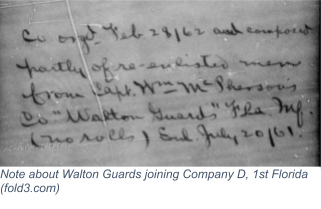 Co orgd. Feb 28/62 and composed
partly of re-enlisted men
from Capt. Wm McPherson's
Co "Walton Guards" Fla. Inf.
(no rolls) Enl. July 20/61.
Note about Walton Guards joining Company D, 1st Florida
(fold3.com)